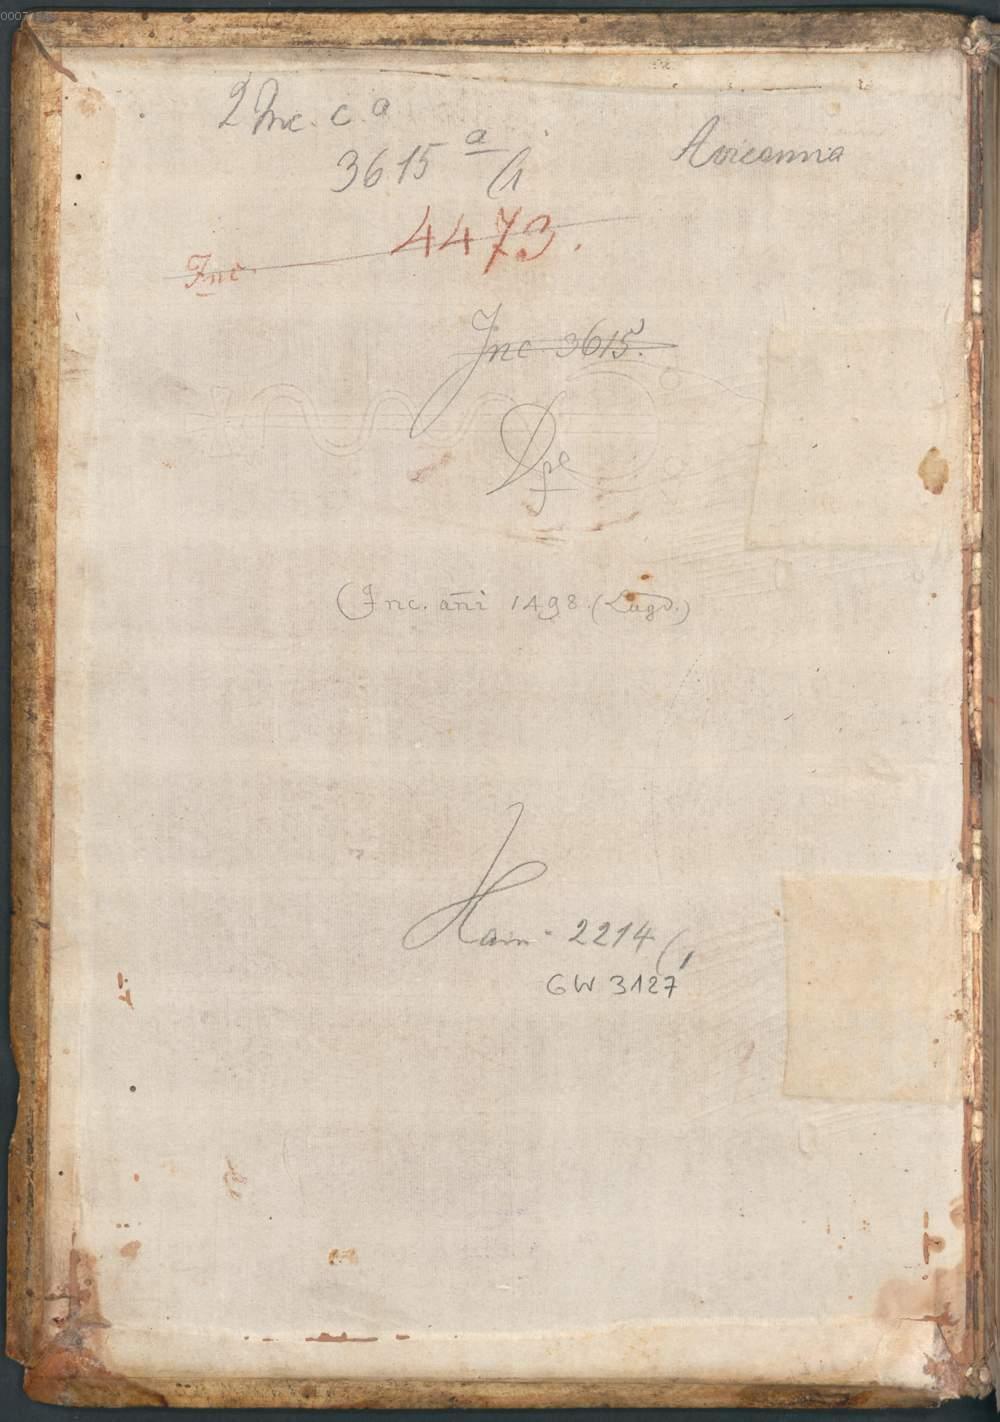 2 Inc. c. a
3615 a (1
Avicenna
4473.
Inc.
Inc 3615.
Dpl
(Inc. añi 1498. (Lugd.)
Hain 2214 (1
GW 3127